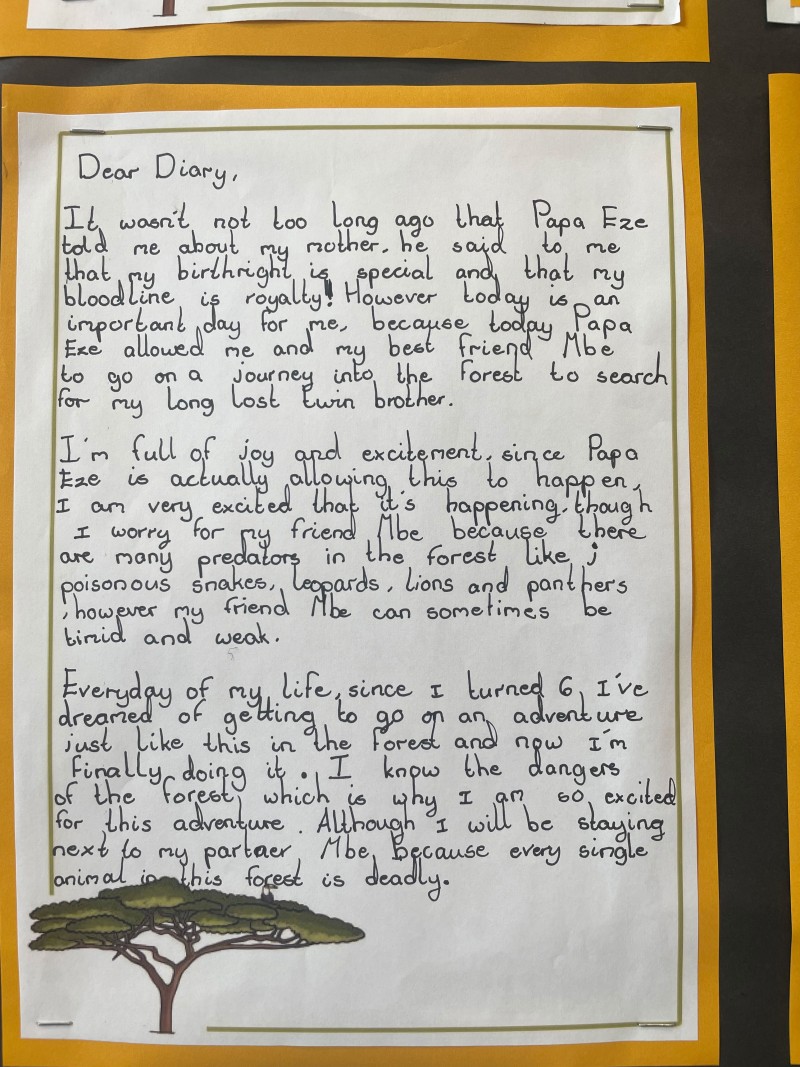 Dear Diary,
It wasn't not too long ago that Papa Eze
told me about my mother. he said to me
that my birthright is special and that my
bloodline is royalty! However today is an
important day for me, because today Papa
Eze allowed me and my best friend Mbe
to go on a journey into the forest to search
for my long lost twin brother.
I'm full of joy and excitement, since Papa
Eze is actually allowing this to happen,
I am very excited that it's happening, though
I worry for my friend Mbe because there
are many predators in the forest like ;
poisonous snakes, leopards, lions and panthers
, however my friend Mbe can sometimes be
timid and weak.
Everyday of my life, since I turned 6, I've
dreamed of getting to go on an adventure
just like this in the forest and now I'm
finally doing it. I know the dangers
of the forest, which is why I am so excited
for this adventure. Although I will be staying
next to my partner Mbe, because every single
animal in this forest is deadly.